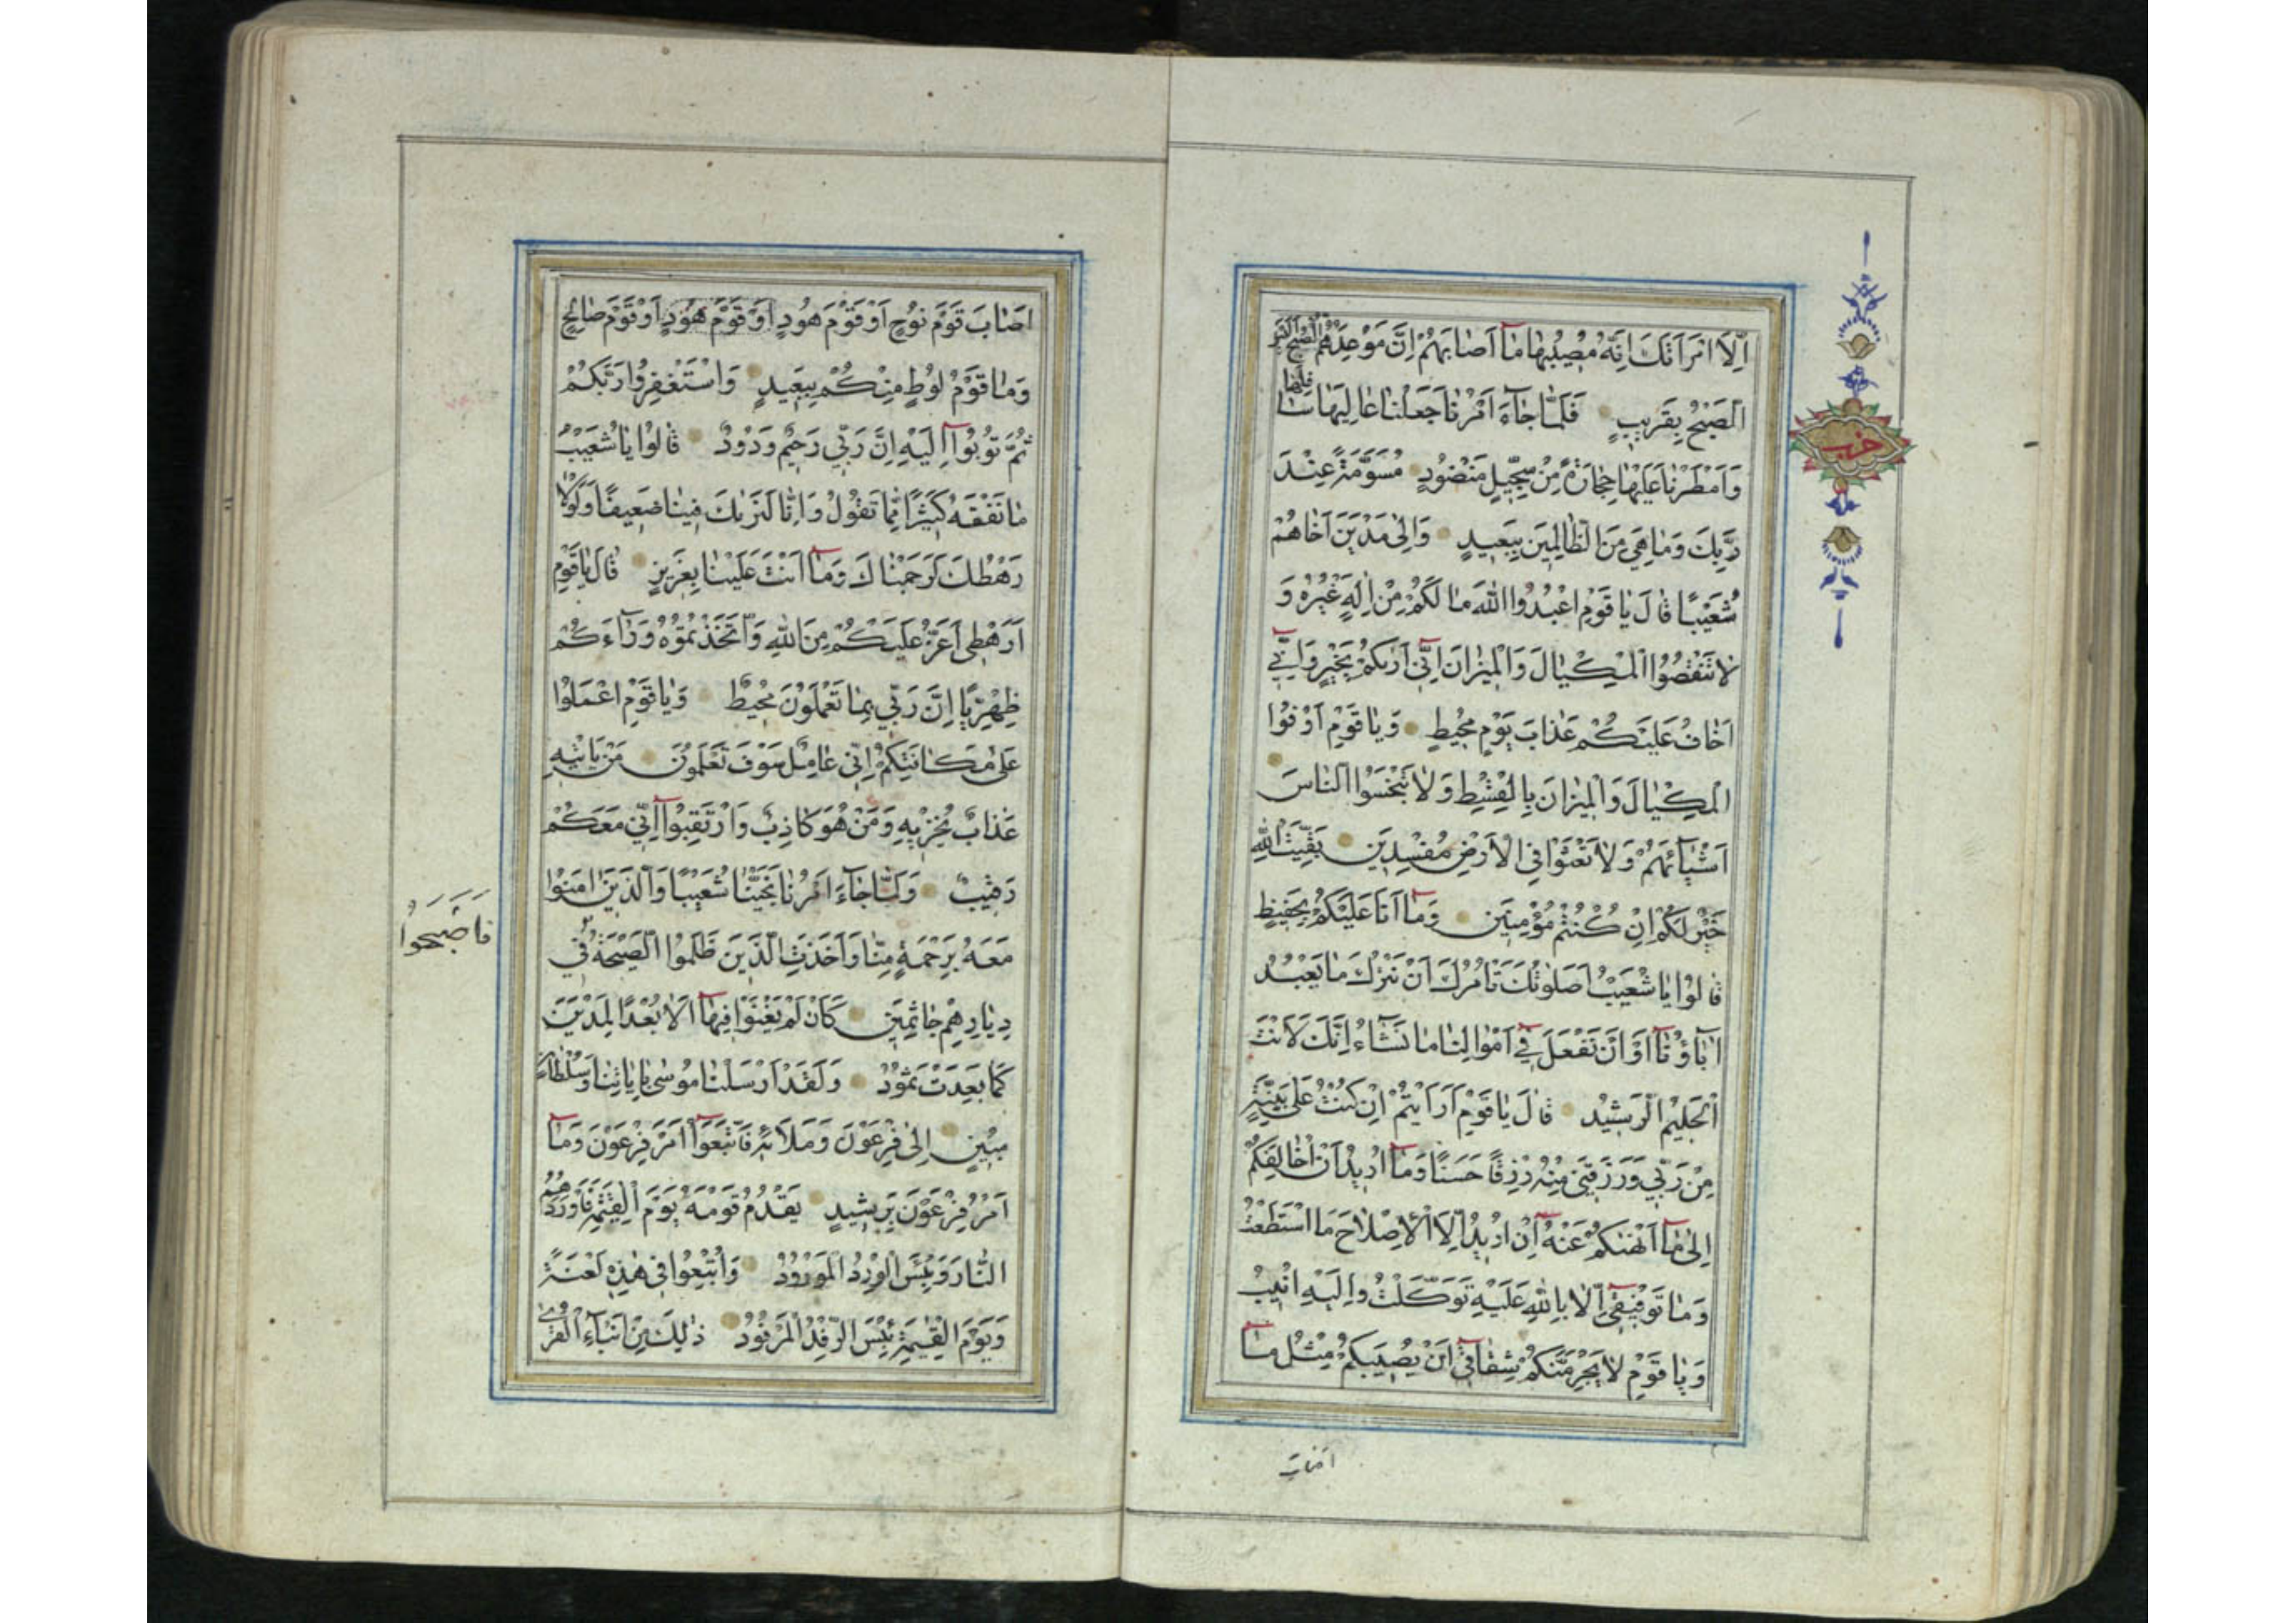 حزب
اِلَّا امْرَاَتَكَ اِنَّهُ مُصِيبُهَا مَآ اَصَابَهُمْ اِنَّ مَوْعِدَهُمُ الصُّبْحُ اَلَيْسَ
الصُّبْحُ بِقَرِيبٍ فَلَمَّا جَآءَ اَمْرُنَا جَعَلْنَا عَالِيَهَا سَافِلَهَا
وَاَمْطَرْنَا عَلَيْهَا حِجَارَةً مِنْ سِجِّيلٍ مَنْضُودٍ مُسَوَّمَةً عِنْدَ
رَبِّكَ وَمَا هِيَ مِنَ الظَّالِمِينَ بِبَعِيدٍ وَاِلٰى مَدْيَنَ اَخَاهُمْ
شُعَيْبًا قَالَ يَا قَوْمِ اعْبُدُوا اللّٰهَ مَا لَكُمْ مِنْ اِلٰهٍ غَيْرُهُ وَ
لَا تَنْقُصُوا الْمِكْيَالَ وَالْمِيزَانَ اِنِّيٓ اَرٰيكُمْ بِخَيْرٍ وَاِنِّيٓ
اَخَافُ عَلَيْكُمْ عَذَابَ يَوْمٍ مُحِيطٍ وَيَا قَوْمِ اَوْفُوا
الْمِكْيَالَ وَالْمِيزَانَ بِالْقِسْطِ وَلَا تَبْخَسُوا النَّاسَ
اَشْيَآئَهُمْ وَلَا تَعْثَوْا فِي الْاَرْضِ مُفْسِدِينَ بَقِيَّتُ اللّٰهِ
خَيْرٌ لَكُمْ اِنْ كُنْتُمْ مُؤْمِنِينَ وَمَآ اَنَا عَلَيْكُمْ بِحَفِيظٍ
قَالُوا يَا شُعَيْبُ اَصَلٰوتُكَ تَاْمُرُكَ اَنْ نَتْرُكَ مَا يَعْبُدُ
اٰبَاؤُنَآ اَوْ اَنْ نَفْعَلَ فِيٓ اَمْوَالِنَا مَا نَشَآءُ اِنَّكَ لَاَنْتَ
الْحَلِيمُ الرَّشِيدُ قَالَ يَا قَوْمِ اَرَاَيْتُمْ اِنْ كُنْتُ عَلٰى بَيِّنَةٍ
مِنْ رَبِّي وَرَزَقَنِي مِنْهُ رِزْقًا حَسَنًا وَمَآ اُرِيدُ اَنْ اُخَالِفَكُمْ
اِلٰى مَآ اَنْهٰيكُمْ عَنْهُ اِنْ اُرِيدُ اِلَّا الْاِصْلَاحَ مَا اسْتَطَعْتُ
وَمَا تَوْفِيقِيٓ اِلَّا بِاللّٰهِ عَلَيْهِ تَوَكَّلْتُ وَاِلَيْهِ اُنِيبُ
وَيَا قَوْمِ لَا يَجْرِمَنَّكُمْ شِقَاقِيٓ اَنْ يُصِيبَكُمْ مِثْلُ مَآ
اصاب
اَصَابَ قَوْمَ نُوحٍ اَوْ قَوْمَ هُودٍ اَوْ قَوْمَ هُودٍ اَوْ قَوْمَ صَالِحٍ
وَمَا قَوْمُ لُوطٍ مِنْكُمْ بِبَعِيدٍ وَاسْتَغْفِرُوا رَبَّكُمْ
ثُمَّ تُوبُوآ اِلَيْهِ اِنَّ رَبِّي رَحِيمٌ وَدُودٌ قَالُوا يَا شُعَيْبُ
مَا نَفْقَهُ كَثِيرًا مِمَّا تَقُولُ وَاِنَّا لَنَرٰيكَ فِينَا ضَعِيفًا وَلَوْلَا
رَهْطُكَ لَرَجَمْنَاكَ وَمَآ اَنْتَ عَلَيْنَا بِعَزِيزٍ قَالَ يَا قَوْمِ
اَرَهْطِي اَعَزُّ عَلَيْكُمْ مِنَ اللّٰهِ وَاتَّخَذْتُمُوهُ وَرَآءَكُمْ
ظِهْرِيًّا اِنَّ رَبِّي بِمَا تَعْمَلُونَ مُحِيطٌ وَيَا قَوْمِ اعْمَلُوا
عَلٰى مَكَانَتِكُمْ اِنِّي عَامِلٌ سَوْفَ تَعْلَمُونَ مَنْ يَاْتِيهِ
عَذَابٌ يُخْزِيهِ وَمَنْ هُوَ كَاذِبٌ وَارْتَقِبُوآ اِنِّي مَعَكُمْ
رَقِيبٌ وَلَمَّا جَآءَ اَمْرُنَا نَجَّيْنَا شُعَيْبًا وَالَّذِينَ اٰمَنُوا
مَعَهُ بِرَحْمَةٍ مِنَّا وَاَخَذَتِ الَّذِينَ ظَلَمُوا الصَّيْحَةُ فِي
فَاَصْبَحُوا
دِيَارِهِمْ جَاثِمِينَ كَاَنْ لَمْ يَغْنَوْا فِيهَآ اَلَا بُعْدًا لِمَدْيَنَ
كَمَا بَعِدَتْ ثَمُودُ وَلَقَدْ اَرْسَلْنَا مُوسٰى بِاٰيَاتِنَا وَسُلْطَانٍ
مُبِينٍ اِلٰى فِرْعَوْنَ وَمَلَائِهِ فَاتَّبَعُوآ اَمْرَ فِرْعَوْنَ وَمَآ
اَمْرُ فِرْعَوْنَ بِرَشِيدٍ يَقْدُمُ قَوْمَهُ يَوْمَ الْقِيٰمَةِ فَاَوْرَدَهُمُ
النَّارَ وَبِئْسَ الْوِرْدُ الْمَوْرُودُ وَاُتْبِعُوا فِي هٰذِهِ لَعْنَةً
وَيَوْمَ الْقِيٰمَةِ بِئْسَ الرِّفْدُ الْمَرْفُودُ ذٰلِكَ مِنْ اَنْبَآءِ الْقُرٰى